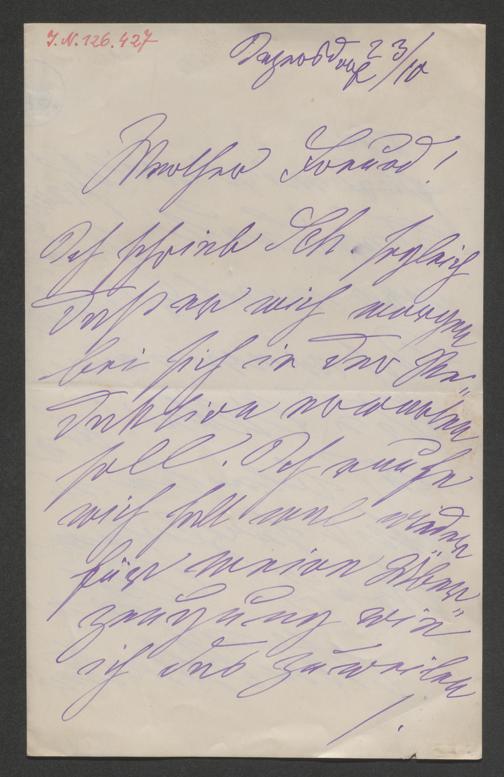 J.N. 126.427
23/10
Werther Freund!
Ich schrieb Sch. sogleich
daß er mich morgen
bei sich in der Re-
daktion erwarten
soll. Ich
mich halt mal wieder
für meine Über-
zeugung wie
ich das zuweilen
/.